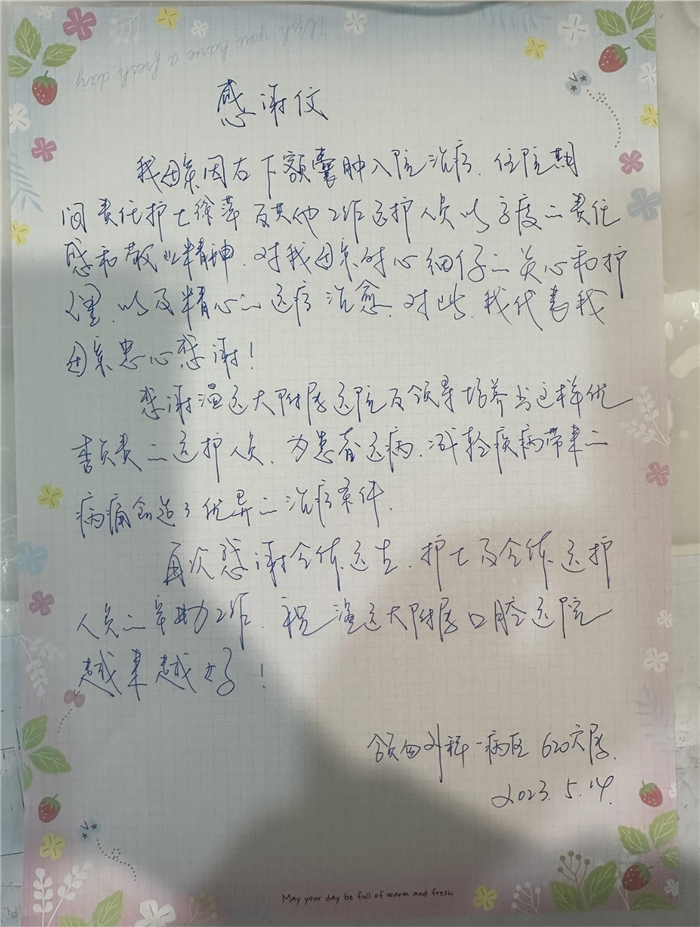 Wish you have a fresh day
感谢信
我母亲因右下额囊肿入院治疗.住院期
间责任护士徐萍及其他工作医护人员以高度的责任
感和敬业精神.对我母亲耐心细仔的关心和护
理.以及精心的医疗治愈.对此.我代表我
母亲忠心感谢!
感谢温医大附属医院及领导培养出这样优
的医护人员.为患者医病.减轻疾病带来的
病痛创造了优异的治疗条件.
再次感谢全体医生.护士及全体医护
人员的辛勤工作.祝温医大附属口腔医院
越来越好!
颌面外科一病区 620家属.
2023.5.14.
May your day be full of warm and fresh